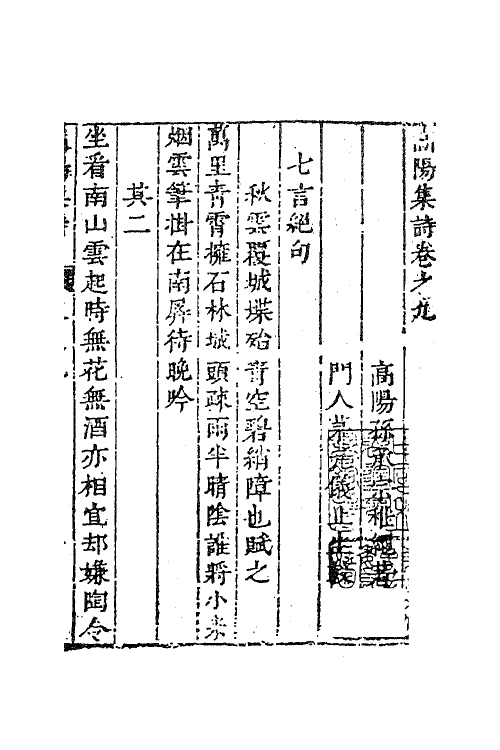 高陽集詩卷之九
高陽孫承宗稚繩著
門人茅元儀止生
七言絕句
秋雲覆城堞殆青空碧綃障也賦之
萬里青霄擁石林城頭疎雨半晴陰誰將小米
烟雲筆掛在南屏待晚吟
其二
坐看南山雲起時無花無酒亦相宜却嫌陶令